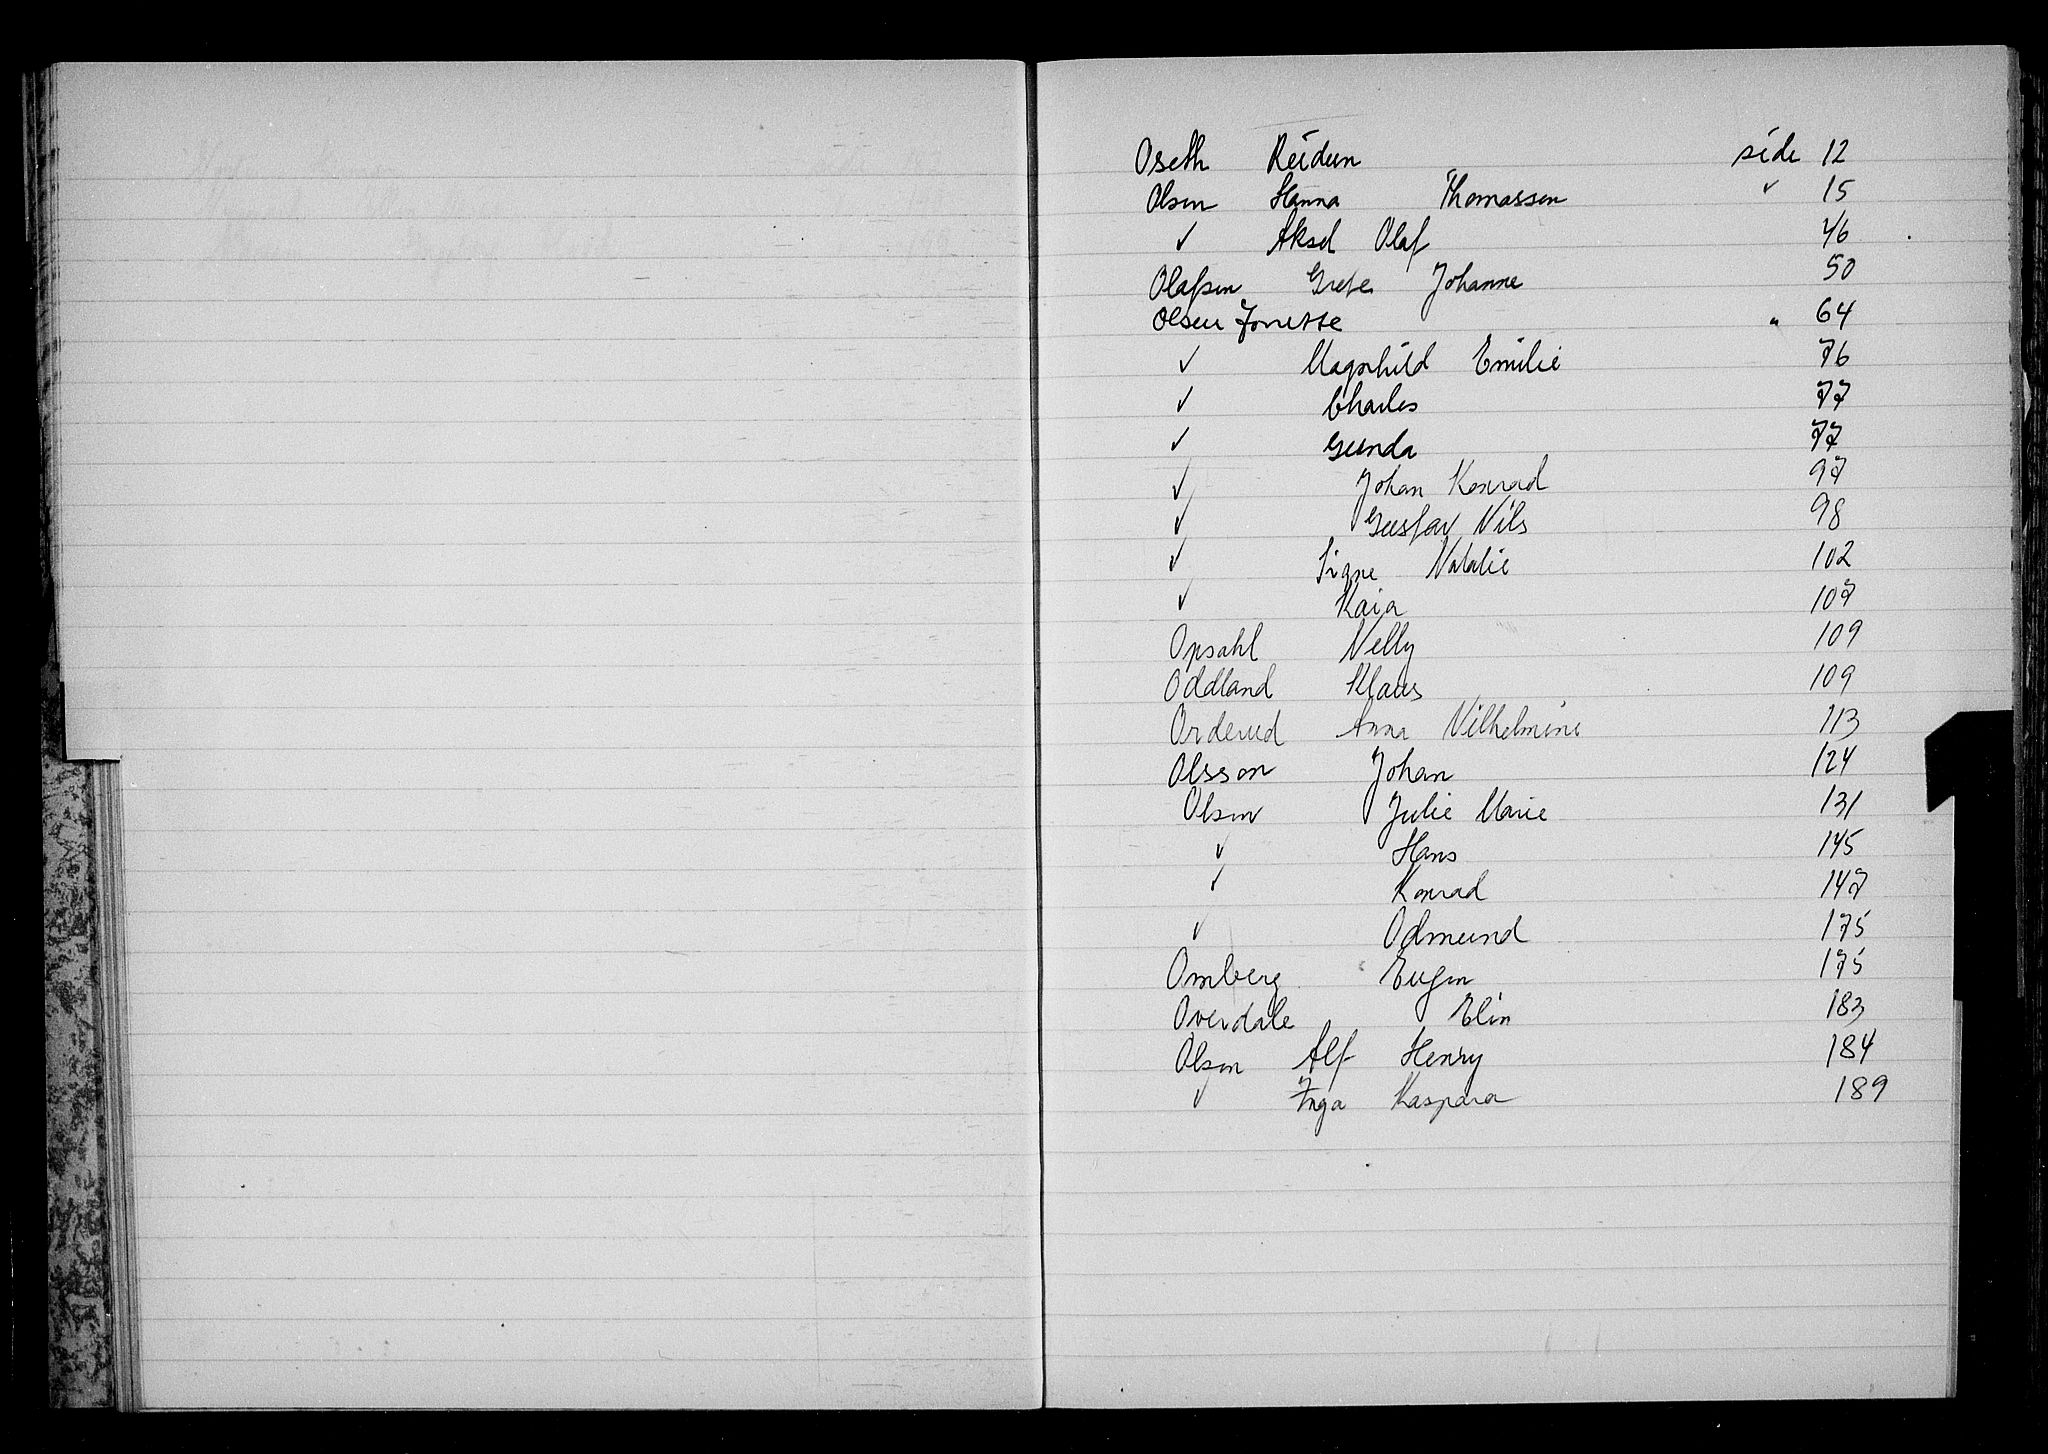 Oseth Reidun side 12
Olsen Hanna Thomassen ✓ 15
✓ Aksel Olaf 46
Olafsen Grete Johanne 50
Olsen Jonette " 64
✓ Magnhild Emilie 76
✓ Charles 77
✓ Gunda 77
✓ Johan Konrad 97
✓ Gustav Nils 98
✓ Signe Natalie 102
✓ Kaia 107
Opsahl Nelly 109
Oddland Klaus 109
Orderud Anna Vilhelmine 113
Olsson Johan 124
Olsen Julie Marie 131
✓ Hans 145
✓ Konrad 147
✓ Odmund 175
Omberg Eugen 175
Overdale Elin 183
Olsen Alf Henry 184
✓ Inga Kaspara 189